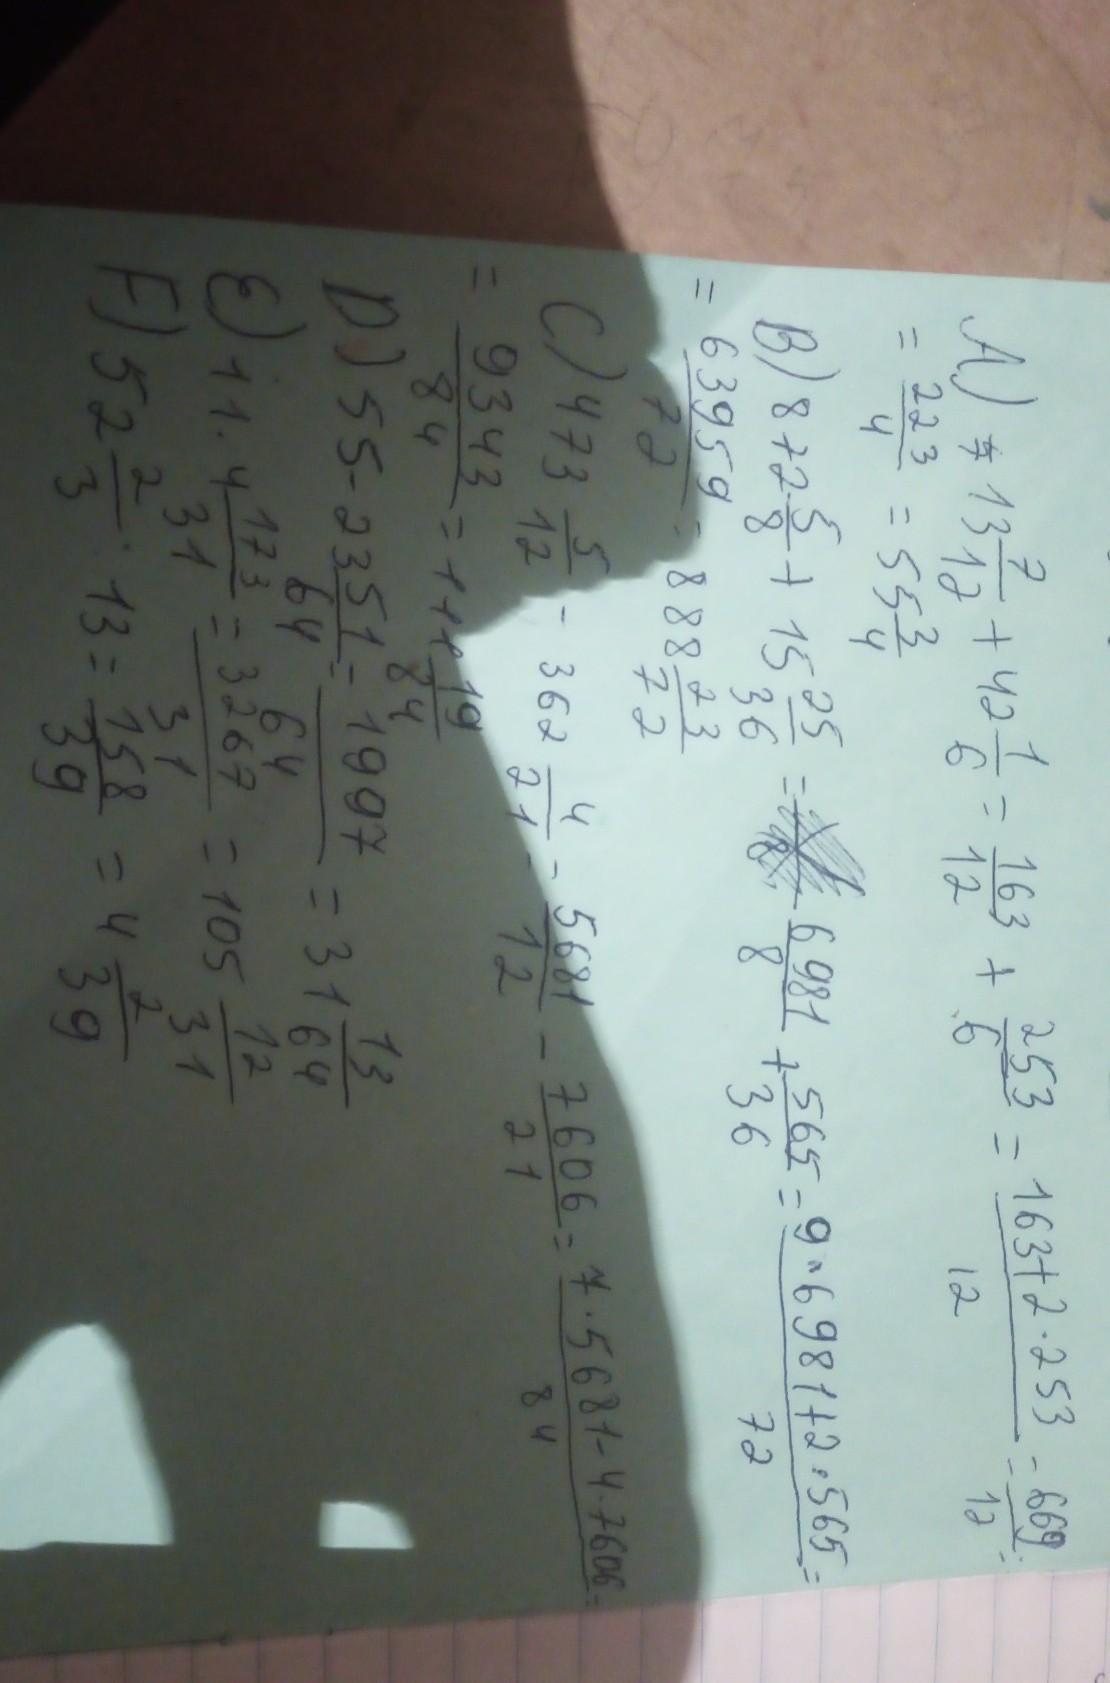 A) 13 7/12 + 42 1/6 = 163/12 + 253/6 = 163+2·253/12 = 669/12 =
= 223/4 = 55 3/4
B) 872 5/8 + 15 25/36 = 6981/8 + 565/36 = 9·6981+2·565/72 =
= 63959/72 = 888 23/72
C) 473 5/12 - 362 4/21 - 5681/12 - 7606/21 = 7·5681-4·7606/84 =
= 9343/84 = 111 19/84
D) 55-23 51/64 = 1997/64 = 31 13/64
E) 11·4 173/31 = 3267/31 = 105 12/31
F) 52 2/3 : 13 = 158/39 = 4 2/39